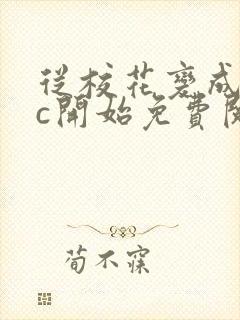 從校花變成
c開始免費閱
荀不寐